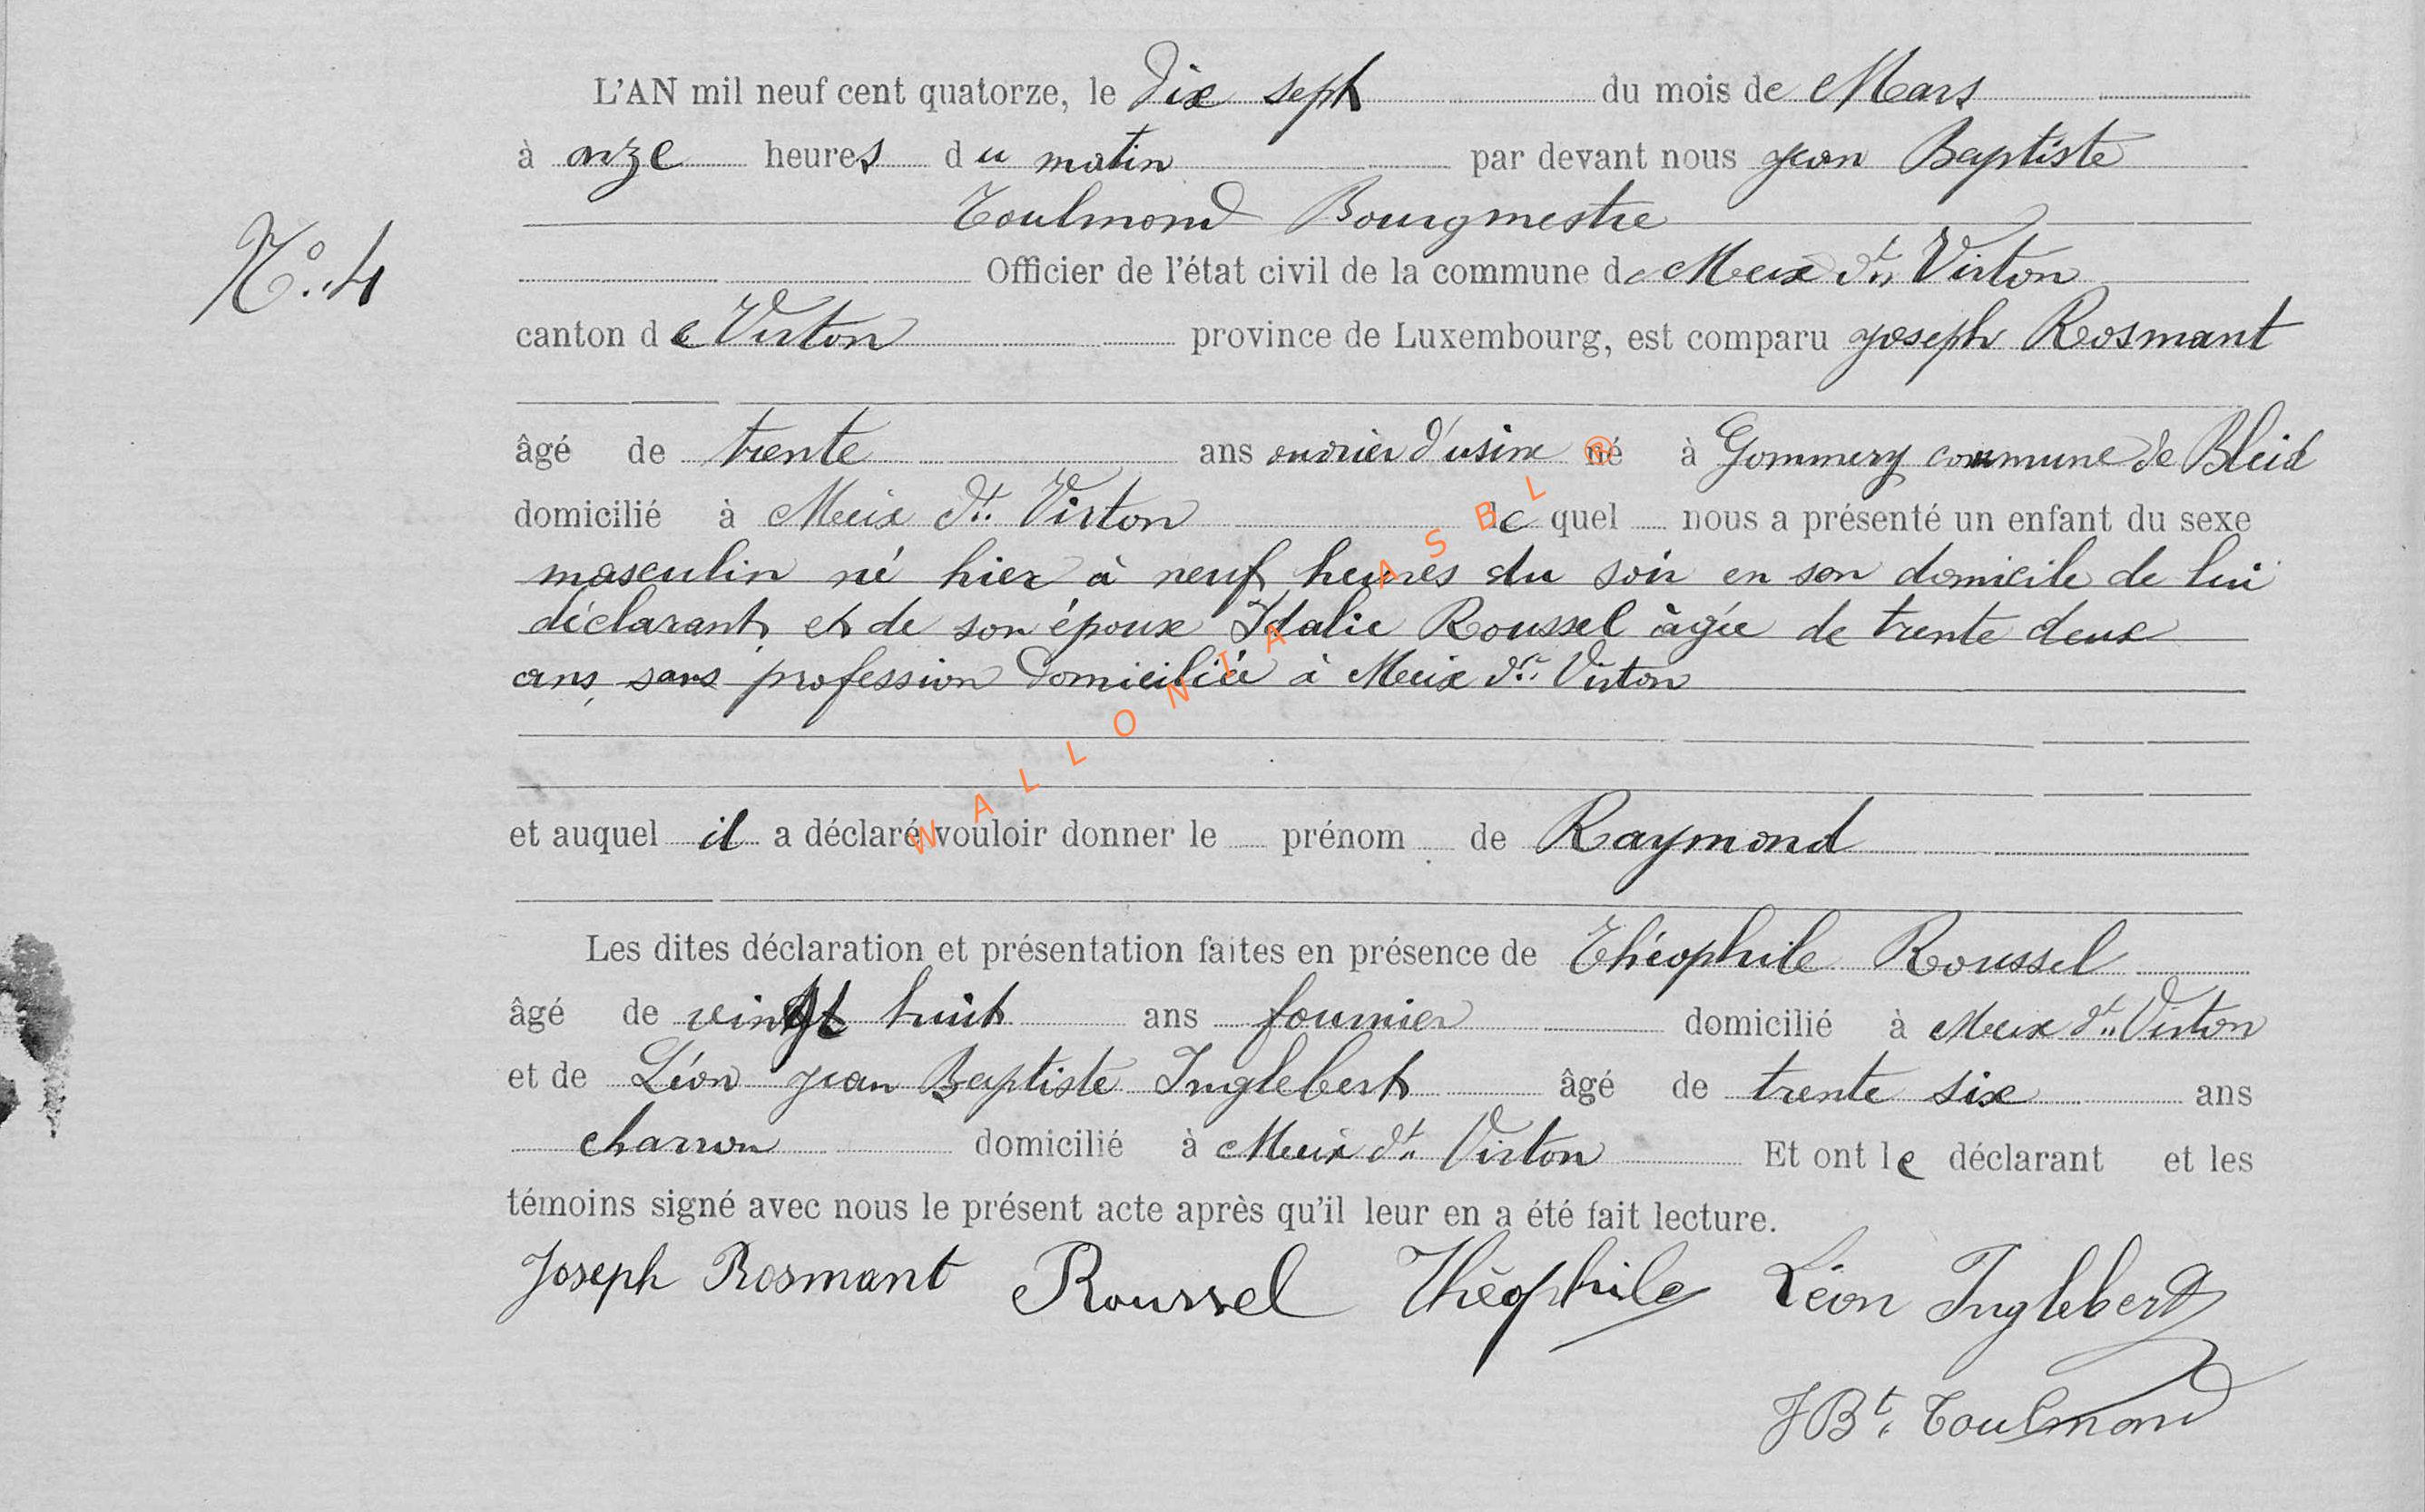 L'AN mil neuf cent quatorze, le Dix sept du mois de Mars
à onze heures du matin par devant nous Jean Baptiste
Toulmond Bourgmestre
N° 4
Officier de l'état civil de la commune de Meix dt Virton
canton de Virton province de Luxembourg, est comparu Joseph Rosmant
âgé de trente ans ouvrier d'usine né à Gommery commune de Bleid
domicilié à Meix dt Virton lequel nous a présenté un enfant du sexe
masculin né hier à neuf heures du soir en son domicile de lui
déclarant et de son époux Idalie Roussel âgée de trente deux
ans, sans profession domiciliée à Meix dt Virton
et auquel il a déclaré vouloir donner le prénom de Raymond
Les dites déclaration et présentation faites en présence de Théophile Roussel
âgé de vingt huit ans fournier domicilié à Meix dt Virton
et de Léon Jean Baptiste Inglebert âgé de trente six ans
charron domicilié à Meix dt Virton Et ont le déclarant et les
témoins signé avec nous le présent acte après qu'il leur en a été fait lecture.
Joseph Rosmant Roussel Théophile Léon Inglebert
JBt Toulmond
WALLONIA ASBL ®